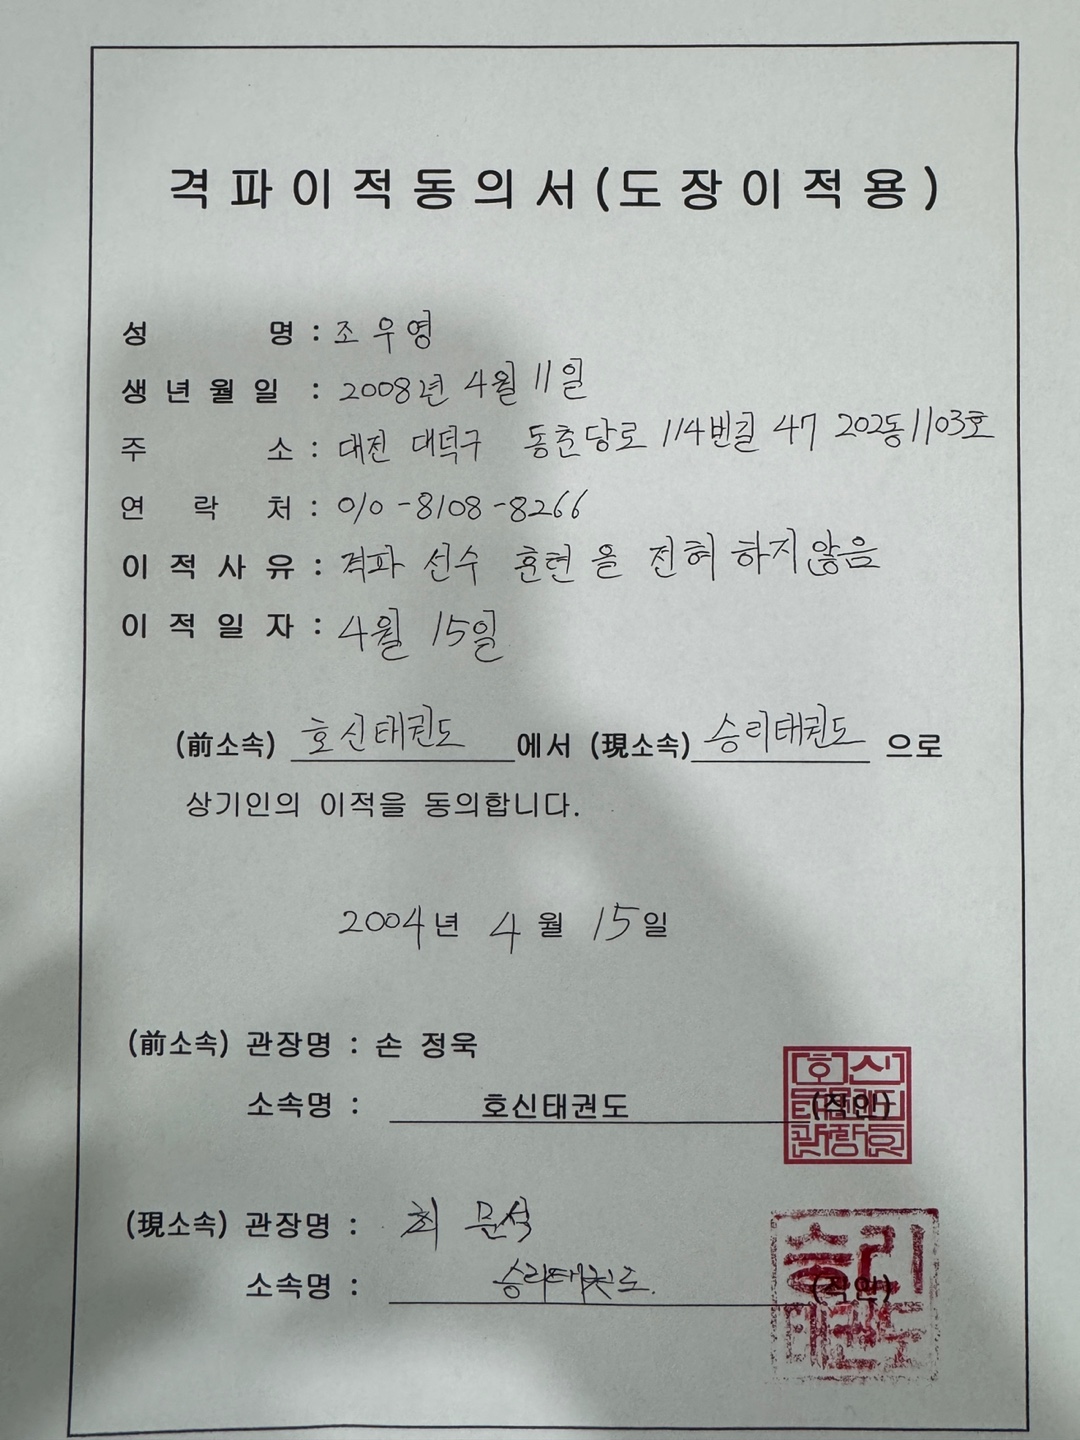 격파이적동의서(도장이적용)
성 명 : 조우영
생년월일 : 2008년 4월 11일
주 소 : 대전 대덕구 동춘당로 114번길 47 202동 1103호
연 락 처 : 010-8108-8266
이적사유 : 격파 선수 훈련을 전혀 하지않음
이적일자 : 4월 15일
(前소속) 호신태권도 에서 (現소속) 승리태권도 으로
상기인의 이적을 동의합니다.
2004년 4월 15일
(前소속) 관장명 : 손 정욱
소속명 : 호신태권도 (직인)
호신
(現소속) 관장명 : 최 문석
소속명 : 승리태권도. (직인)
승리
태권도